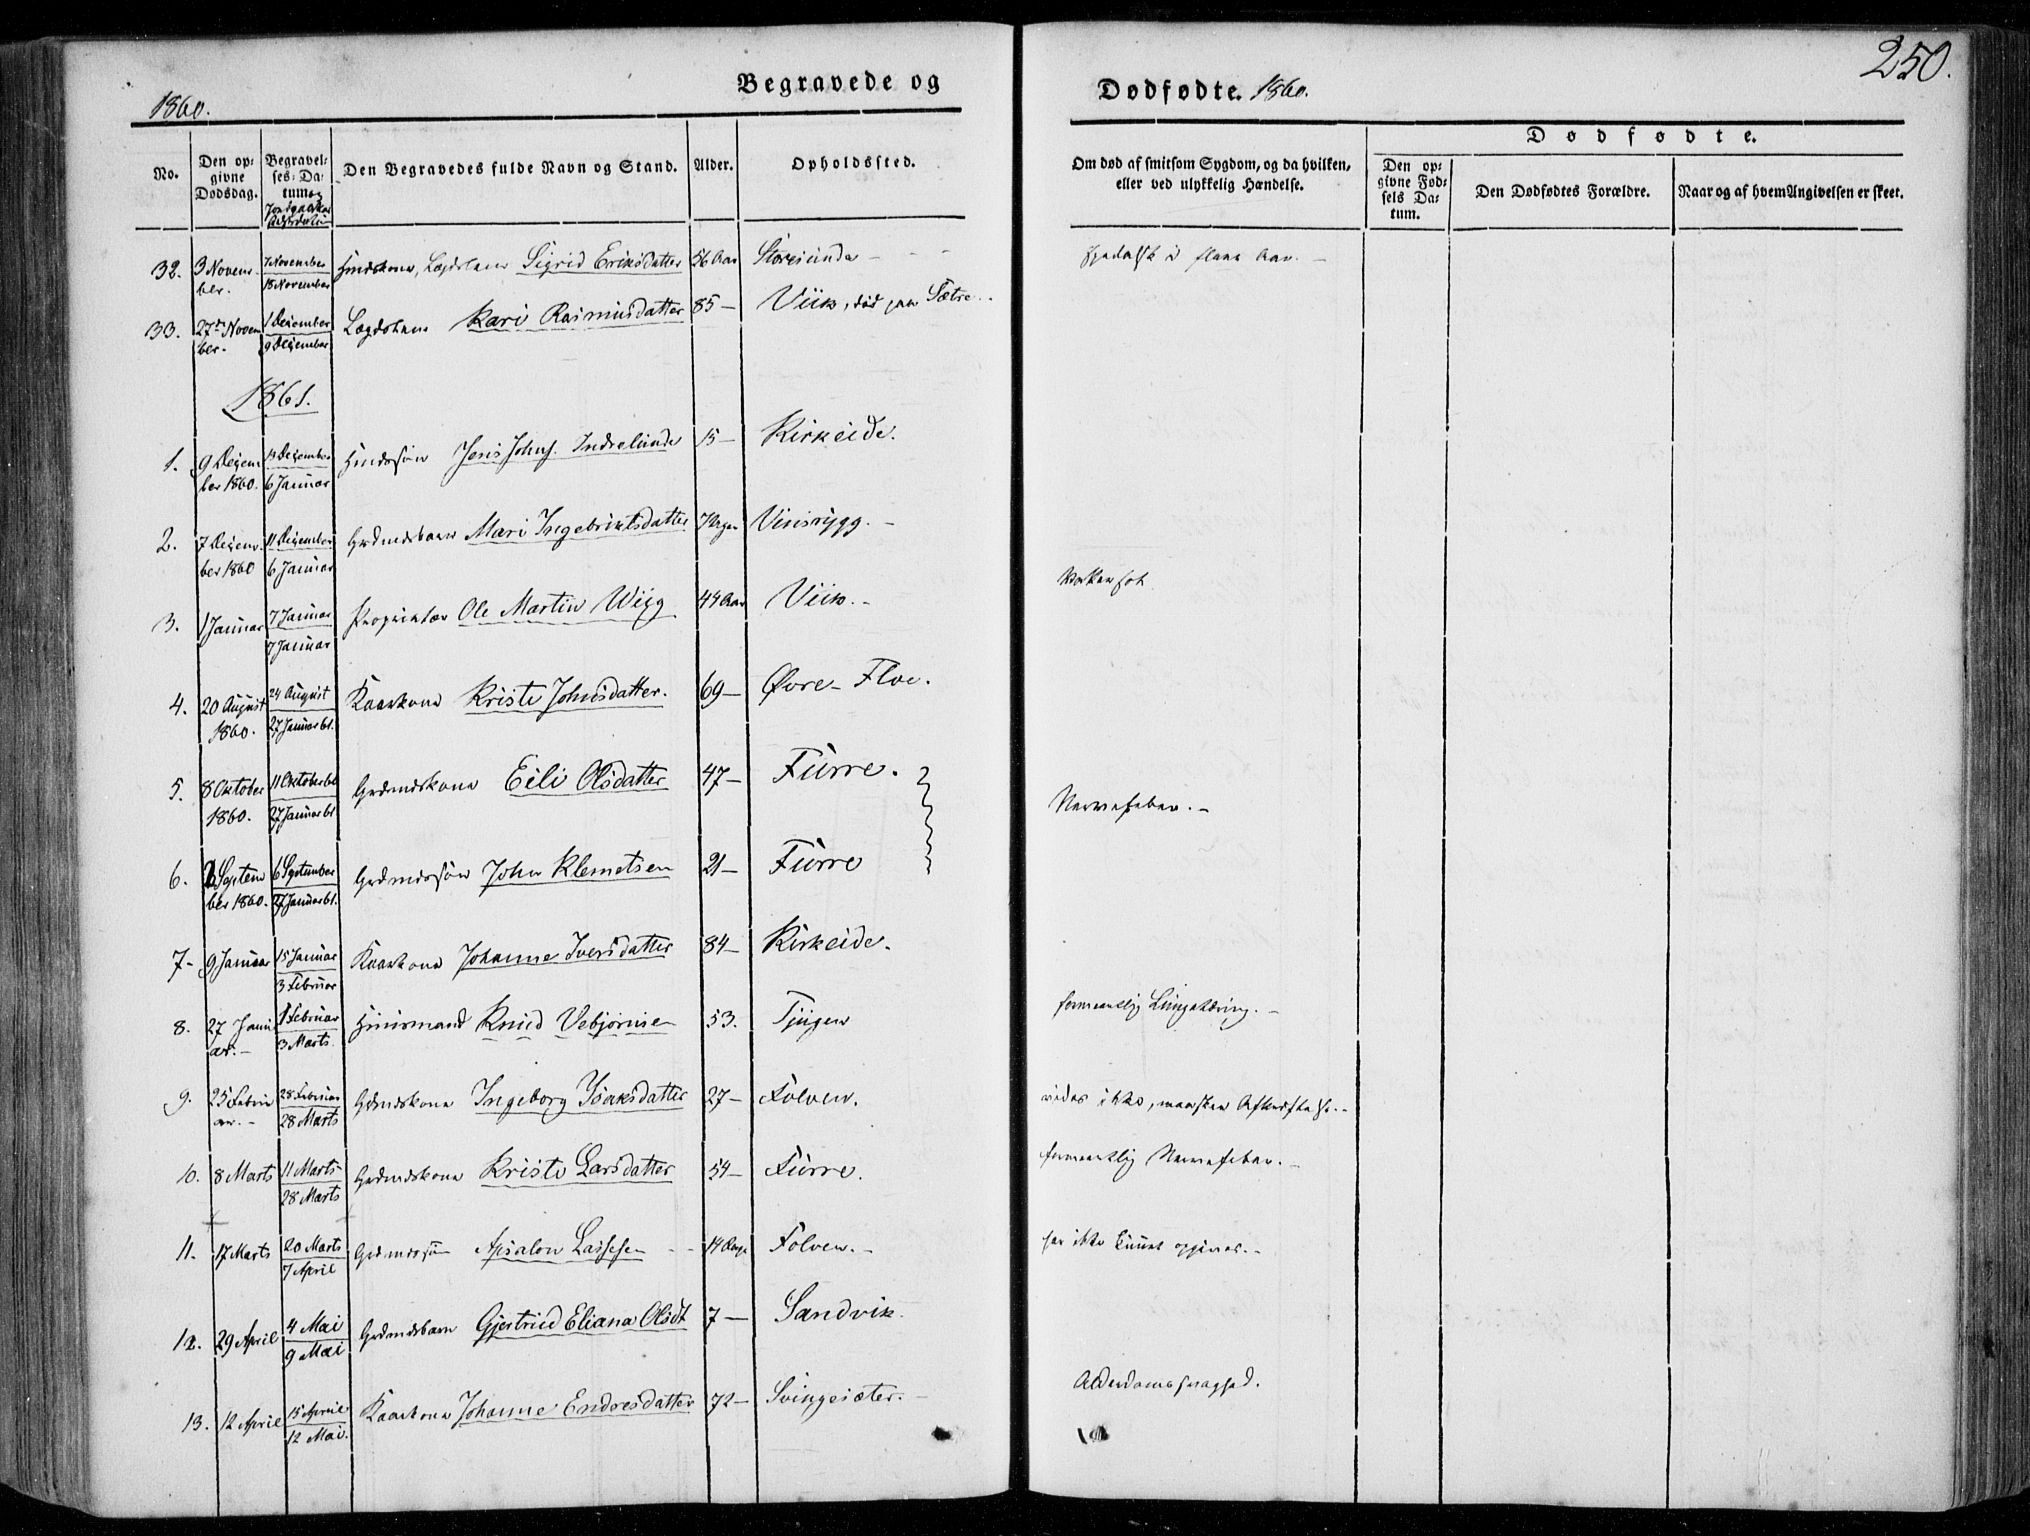 250.
1860.
Begravede og
Dødfødte. 1860.
Dødfødte.
No.
Den op-
givne
Dødsdag.
Begravel-
ses-Da-
tum og
Jordpaakastelsen
Den Begravedes fulde Navn og Stand.
Alder.
Opholdssted.
Om død af smitsom Sygdom, og da hvilken,
eller ved ulykkelig Hændelse.
Den op-
givne Fød-
sels Da-
tum.
Den Dødfødtes Forældre.
Naar og af hvem Angivelsen er skeet.
32. 3 Novem-
ber. 7 November
18 November Huuskone, Lægdslem Sigrid Eriksdatter 56 Aar Storesunde - Spedalsk i flere Aar. -
33. 27de Novem
ber. 1 December
9 December Lægdslem Kari Rasmusdatter 85 - Viik, død paa Sætre.
1861.
1. 9 Decem
ber 1860. 14 December
6 Januar Huusssøn Jens Johns. Indrelunde 15 - Kirkeide.
2. 7 Decem-
ber 1860 11 December
6 Januar Grdmdsbarn Mari Ingebriktsdatter 7 Uger Vinsrygg. -
3. 1 Januar 7 Januar
7 Januar Proprietær Ole Martin Wiig 44 Aar Viik. - Vattersot
4. 20 August
1860. 24 August
27 Januar 61. Kaarkone Kristi Johnsdatter. 69 - Øvre-Floe.
5. 8 Oktober
1860. 11 Oktober 60
27 Januar 61 Grdmdskone Eili Olsdatter 47 - Furre. Nervefeber. -
6. 2 Septem
ber 1860. 6 September
27 Januar 61. Grdmdssøn John Klemetsen 21 - Furre
7 - 9 Januar 15 Januar
3 Februar Kaarkone Johanne Iversdatter 84 - Kirkeide.
8. 27 Janu
ar. - 1 Februar
3 Marts. Huusmand Knud Vebjørnsen 53. Tjugen formentlig Lungetæring. -
9. 25 Febru
ar. - 28 Februar
28 Marts Grdmdskone Ingeborg Isaksdatter 27 - Folven. vides ikke, maaskee
10. 8 Marts 11 Marts
28 Marts Grdmdskone Kristi Larsdatter 54 - Furre. formentlig Nervefeber. -
11. 17 Marts 20 Marts
7 April Grdmdssøn Apsalon Lassesen 14 Dage Folven. - har ikke kunnet opgives. -
12. 29 April 4 Mai
9 Mai Grdmdsbarn Gjertrud Eliana Olsdt 7 - Sandvik.
13. 12 April 15 April
12 Mai. Kaarkone Johanne Endresdatter 72 - Svingesæter. - Alderdomssvaghed.